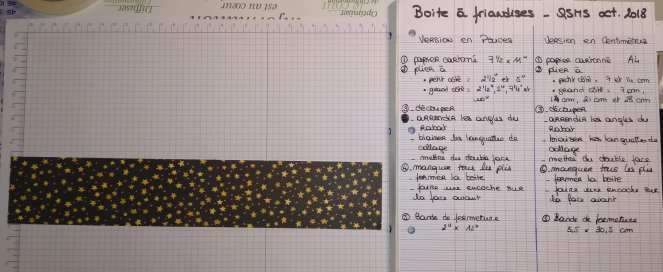 Boîte à friandises - QSMS oct. 2018
Version en Pouces
① papier cartonné 7 1/2 x 11"
② plier à
• petit côté : 2 1/2" et 5"
• grand côté : 2 1/2", 5", 7 1/2" et
10"
③ - découper
- arrondir les angles du
Rabat
- biaiser les languettes de
collage
- mettre du double face
④ marquer tous les plis
- fermer la boîte
- faire une encoche sur
la face avant
⑤ Bande de fermeture
2" x 12"
Version en Centimètres
① papier cartonné A4
② plier à
• petit côté : 7 et 14 cm
• grand côté : 7 cm,
14 cm, 21 cm et 28 cm
③ - découper
- arrondir les angles du
Rabat
- biaiser les languettes de
collage
- mettre du double face
④ marquer tous les plis
- fermer la boîte
- faire une encoche sur
la face avant
⑤ Bande de fermeture
5,5 x 30,5 cm